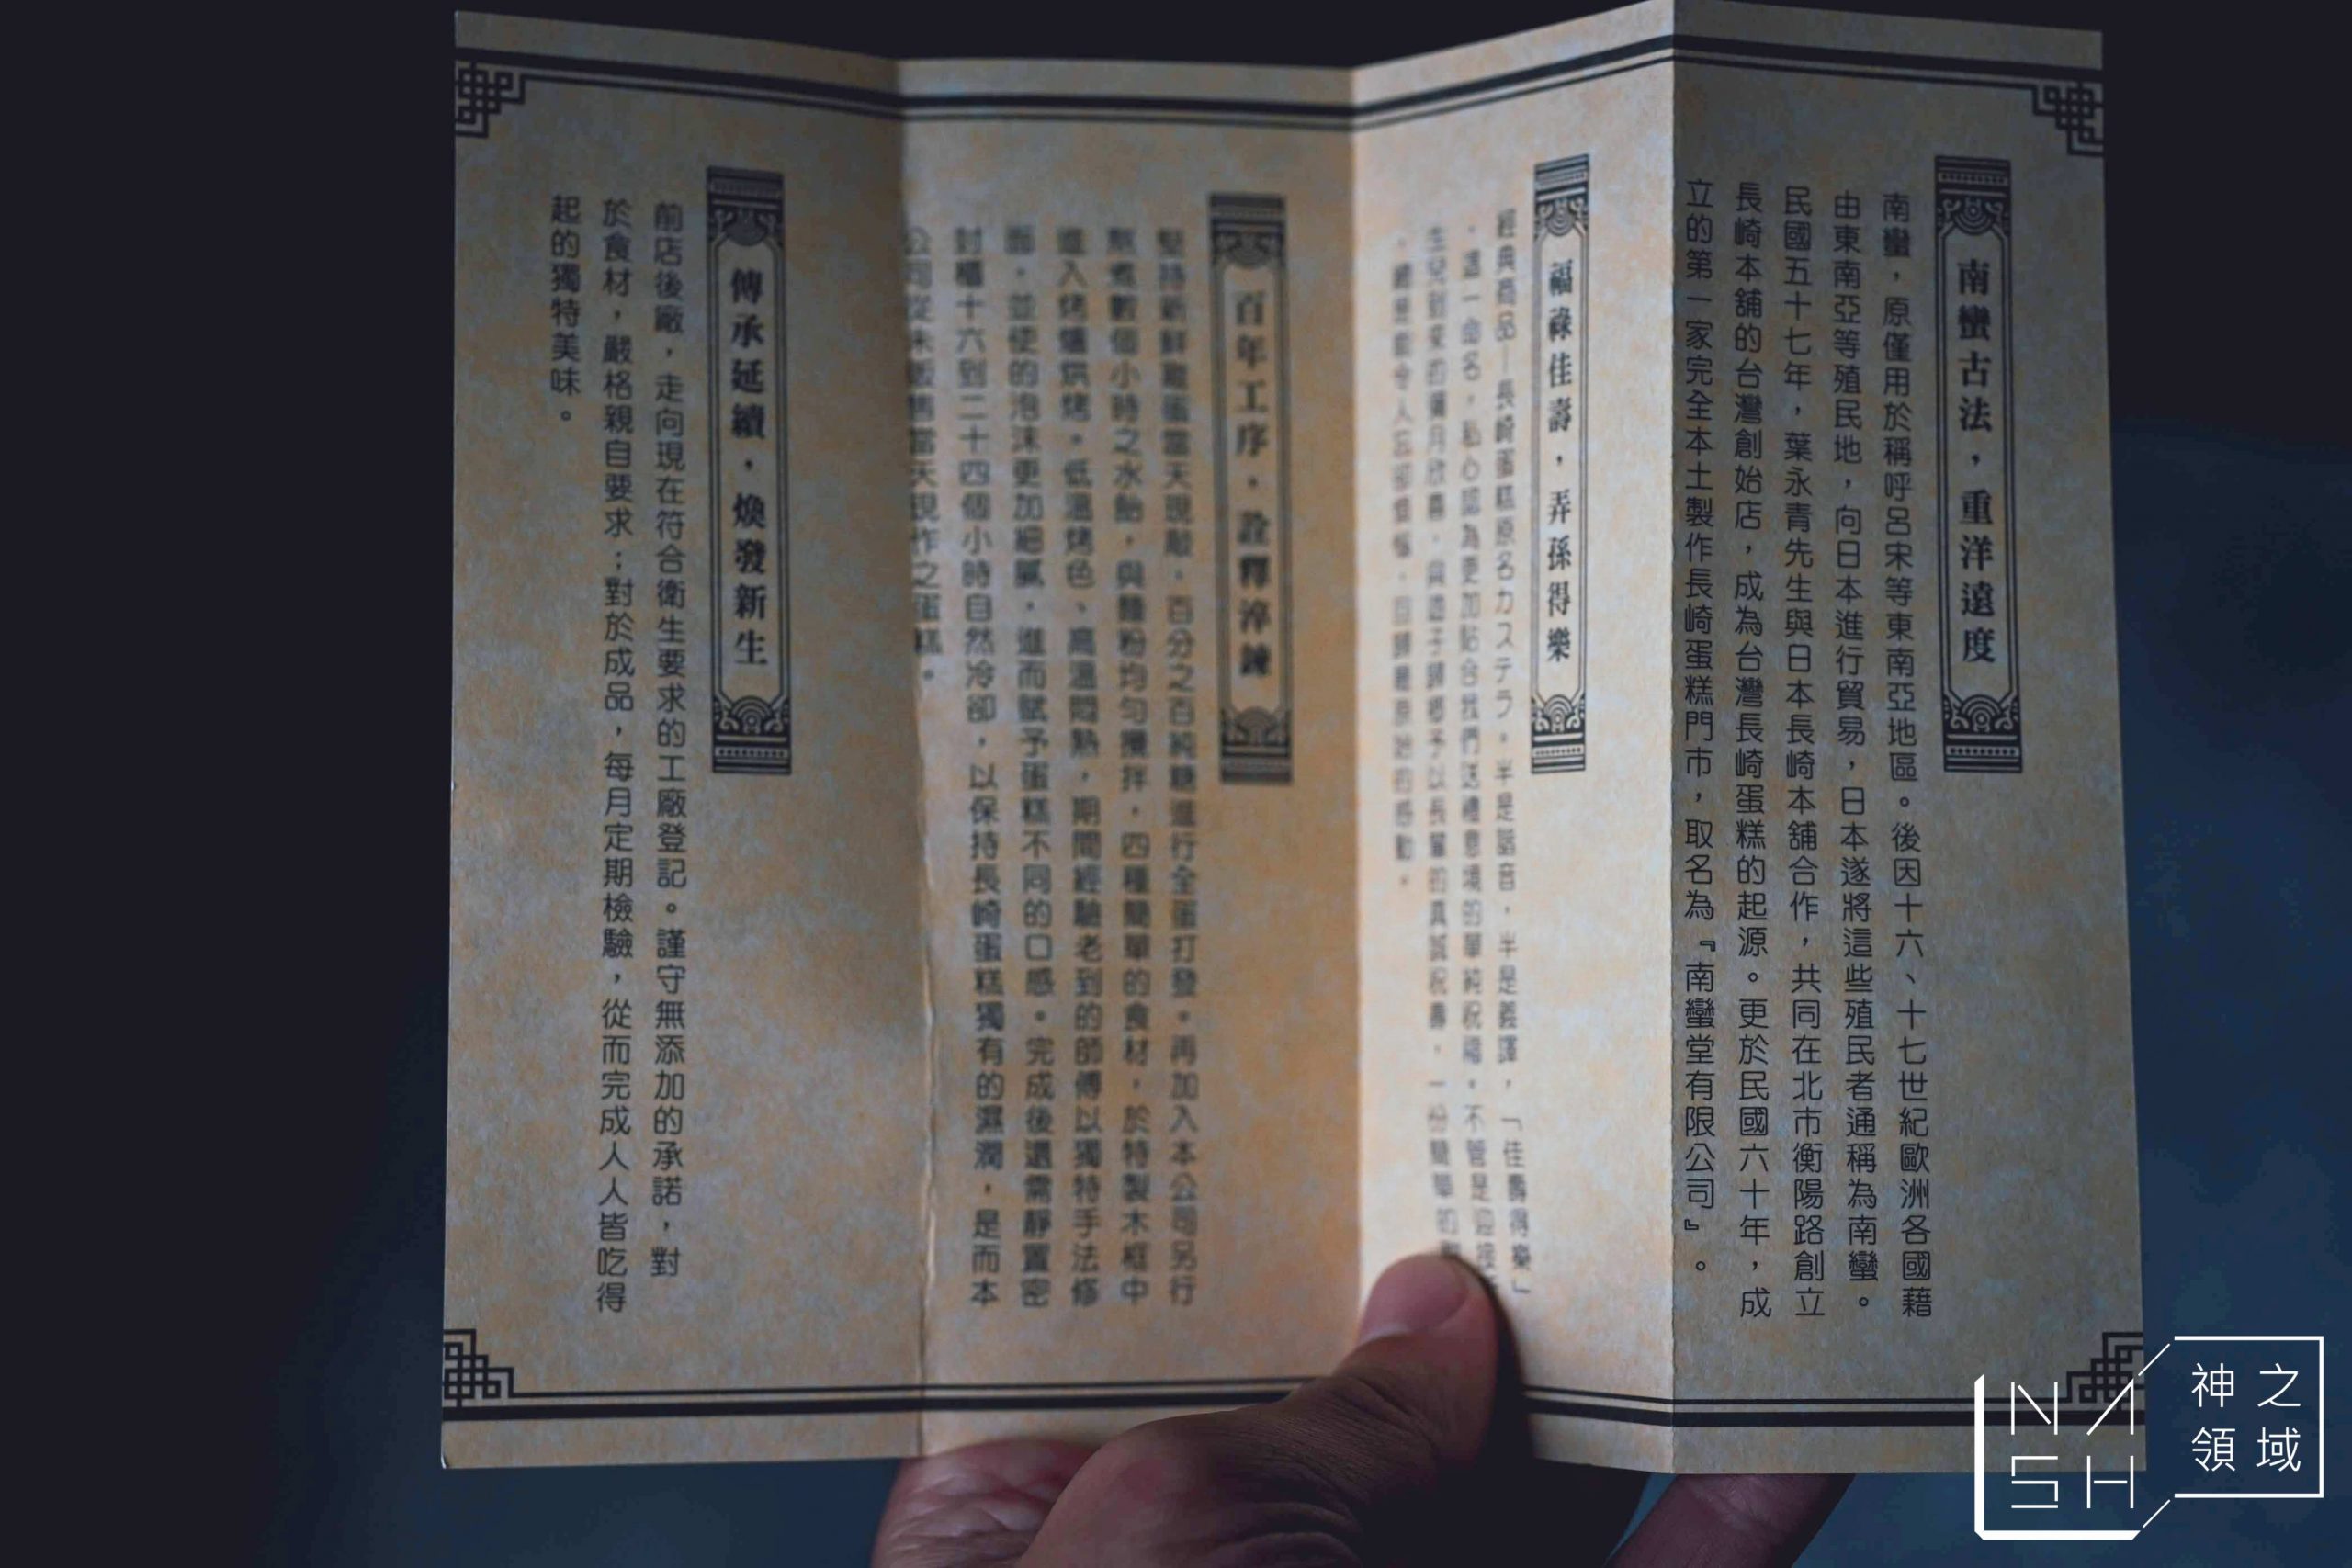 南蠻古法，重洋遠度
南蠻，原僅用於稱呼呂宋等東南亞地區。後因十六、十七世紀歐洲各國藉
由東南亞等殖民地，向日本進行貿易，日本遂將這些殖民者通稱為南蠻。
民國五十七年，葉永青先生與日本長崎本舖合作，共同在北市衡陽路創立
長崎本舖的台灣創始店，成為台灣長崎蛋糕的起源。更於民國六十年，成
立的第一家完全本土製作長崎蛋糕門市，取名為『南蠻堂有限公司』。
福祿佳壽，弄孫得樂
經典商品—長崎蛋糕原名カステラ，半是諧音，半是義譯，「佳壽得樂」
，這一曲名，私心認為更加貼合我們送禮意境的單純祝福，不管是迎接
生兒到來的彌月欣喜，與遊子歸鄉予以長輩的真誠祝壽，一份簡單的
，總是能令人忘卻煩惱，回歸最原始的感動。
百年工序，詮釋淬鍊
堅持新鮮雞蛋當天現敲，百分之百純糖進行全蛋打發。再加入本公司另行
熬煮數個小時之水飴，與麵粉均勻攪拌，四種簡單的食材，於特製木框中
進入烤爐烘烤。低溫烤色、高溫悶熟，期間經驗老到的師傅以獨特手法修
面，並使的泡沫更加細膩，進而賦予蛋糕不同的口感。完成後還需靜置密
封櫃十六到二十四個小時自然冷卻，以保持長崎蛋糕獨有的濕潤，是而本
公司從未販售當天現作之蛋糕。
傳承延續，煥發新生
前店後廠，走向現在符合衛生要求的工廠登記。謹守無添加的承諾，對
於食材，嚴格親自要求；對於成品，每月定期檢驗，從而完成人人皆吃得
起的獨特美味。
NASH
神之
領域